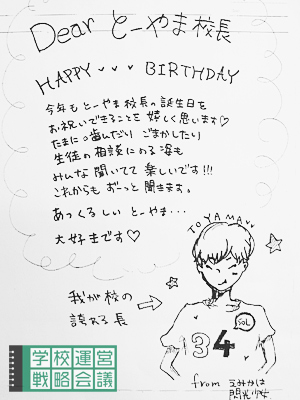 Dear とーやま校長
HAPPY BIRTHDAY
今年もとーやま校長の誕生日を
お祝いできることを嬉しく思います♡
たまに噛んだり ごまかしたり
生徒の相談にのる姿も
みんな聞いてて楽しいです!!!
これからもずーっと聞きます。
あっくるしい とーやま…
大好きです♡
TOYAMA
我が校の
誇れる長
SOL
34
学校運営
戦略会議
from